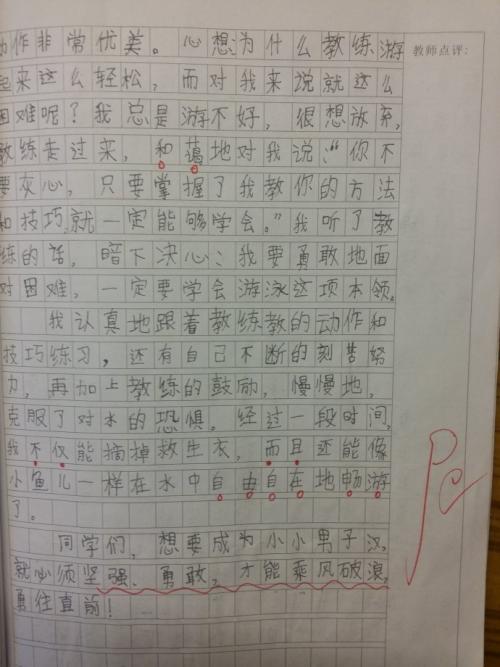 动作非常优美。心想：为什么教练游
起来这么轻松，而对我来说就这么
困难呢？我总是游不好，很想放弃，
教练走过来，和蔼地对我说：“你不
要灰心，只要掌握了我教你的方法
和技巧，就一定能够学会。”我听了教
练的话，暗下决心：我要勇敢地面
对困难，一定要学会游泳这项本领。
我认真地跟着教练教的动作和
技巧练习，还有自己不断的刻苦努
力，再加上教练的鼓励，慢慢地，
克服了对水的恐惧。经过一段时间，
我不仅能摘掉救生衣，而且还能像
小鱼儿一样在水中自由自在地畅游
了。
同学们，想要成为小小男子汉，
就必须坚强、勇敢，才能乘风破浪，
勇往直前！
教师点评：